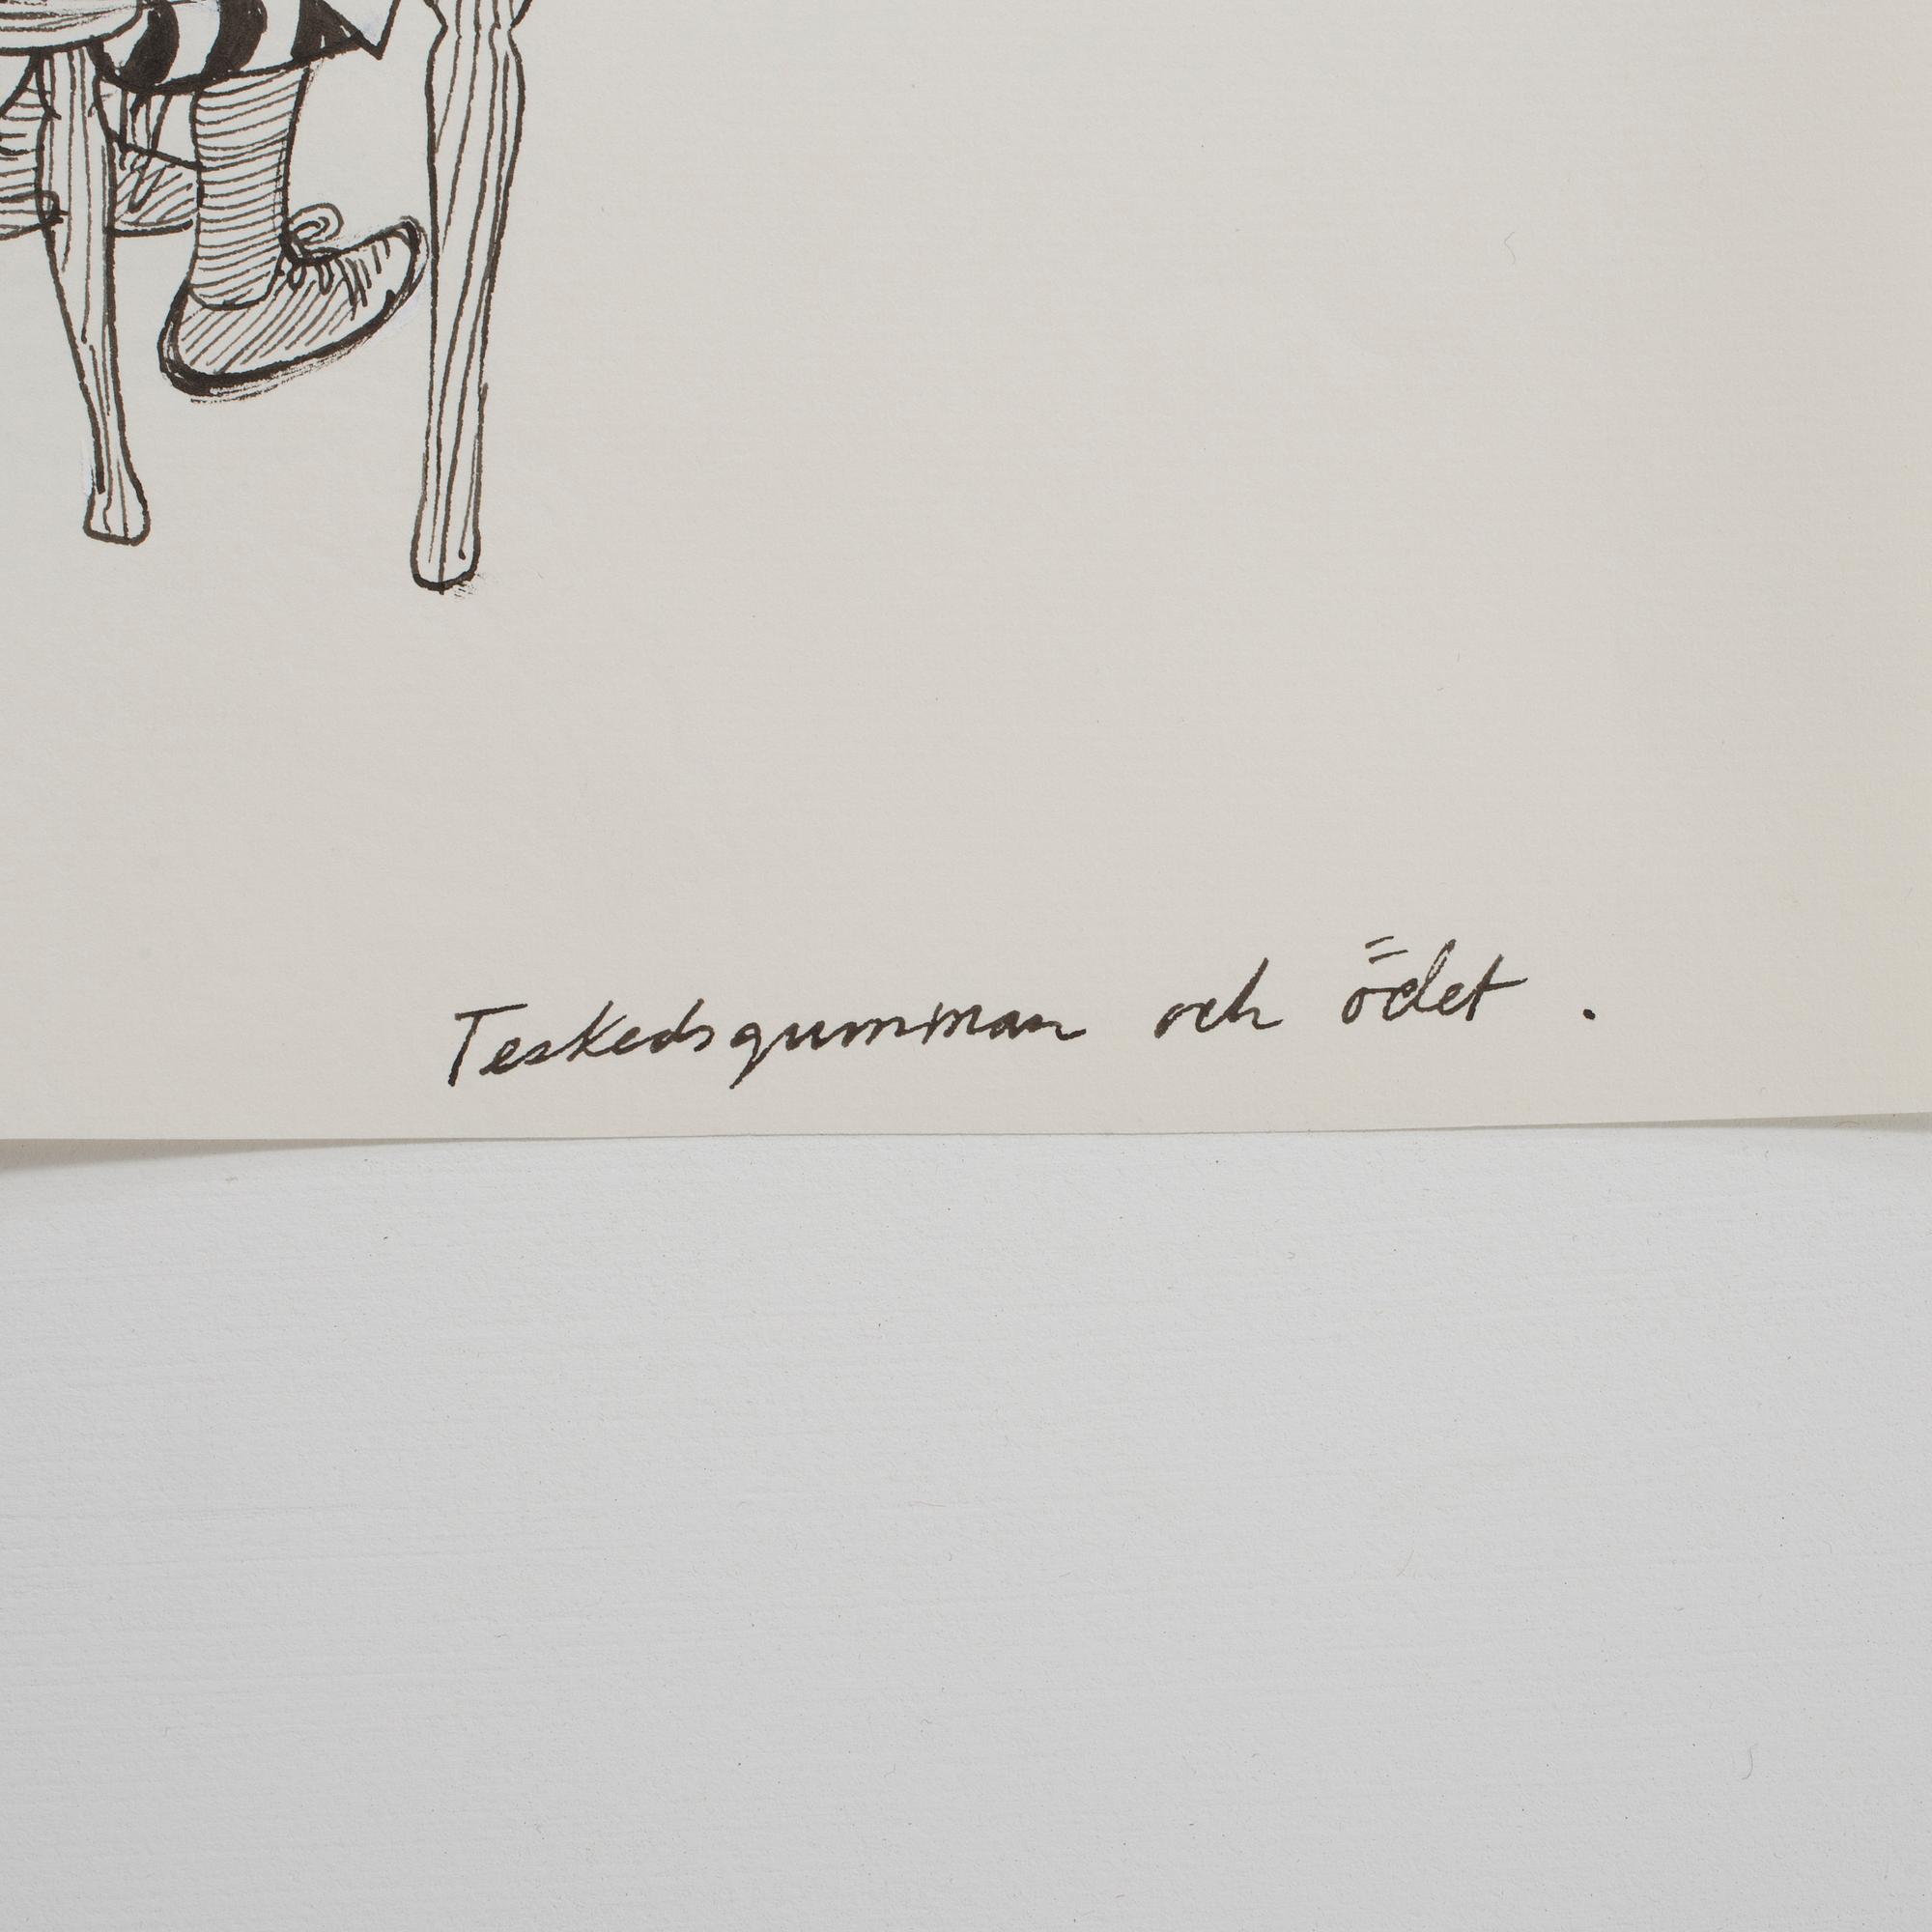 Teskedsgumman och ödet .